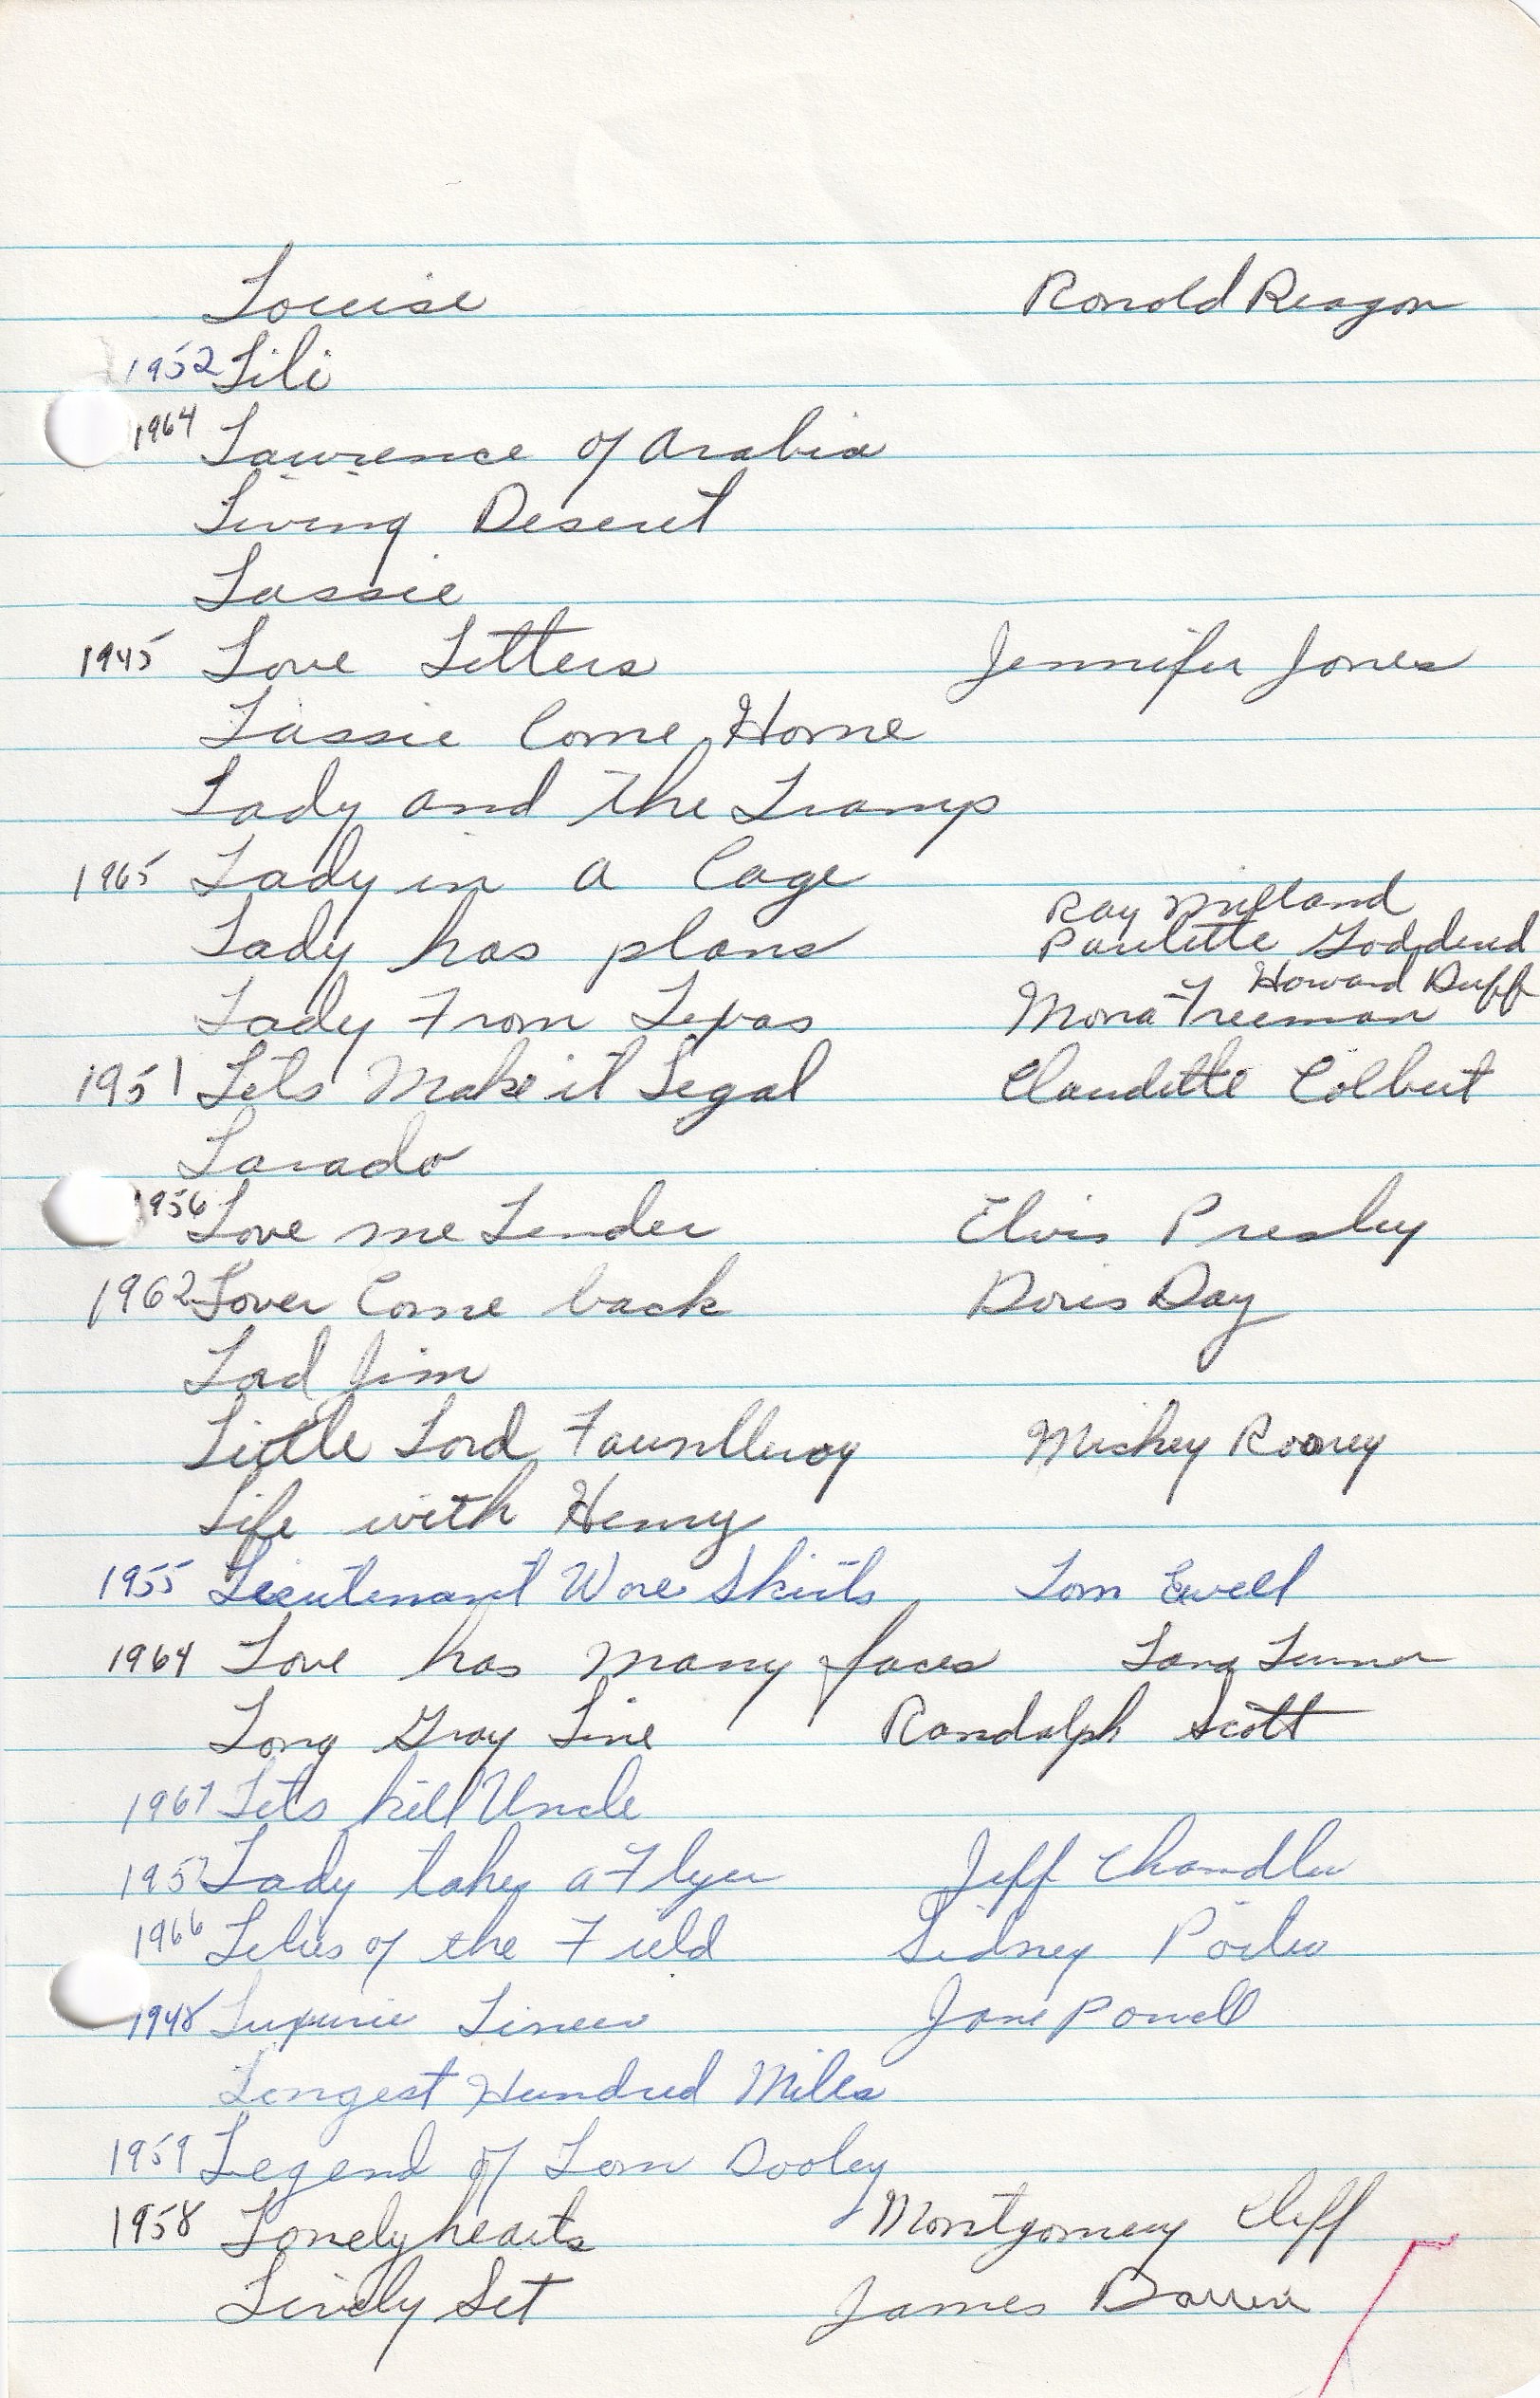 Louise Ronald Reagon
1952 Lili
1964 Lawrence of Arabia
Living Desert
Lassie
1945 Love Letters Jennifer Jones
Lassie Come Home
Lady and the Tramp
1965 Lady in a Cage
Ray Milland
Lady has plans Paulette Goddard
Howard Duff
Lady From Texas Mona Freeman
1951 Lets Make it Legal Claudette Colbert
Larado
1956 Love me Tender Elvis Presley
1962 Lover Come back Doris Day
Lord Jim
Little Lord Faunlleroy Mickey Rooney
Life with Henry
1955 Lieutenant Wore Skirts Tom Ewell
1964 Love has many faces Lana Turner
Long Gray Line Randolph Scott
1967 Lets kill Uncle
1957 Lady takes a Flyer Jeff Chandler
1966 Lilies of the Field Sidney Poitier
1948 Luxurie Liner Jane Powell
Longest Hundred Miles
1959 Legend of Tom Dooley
1958 Lonelyhearts Montgomery Cliff
Lively Set James Darren